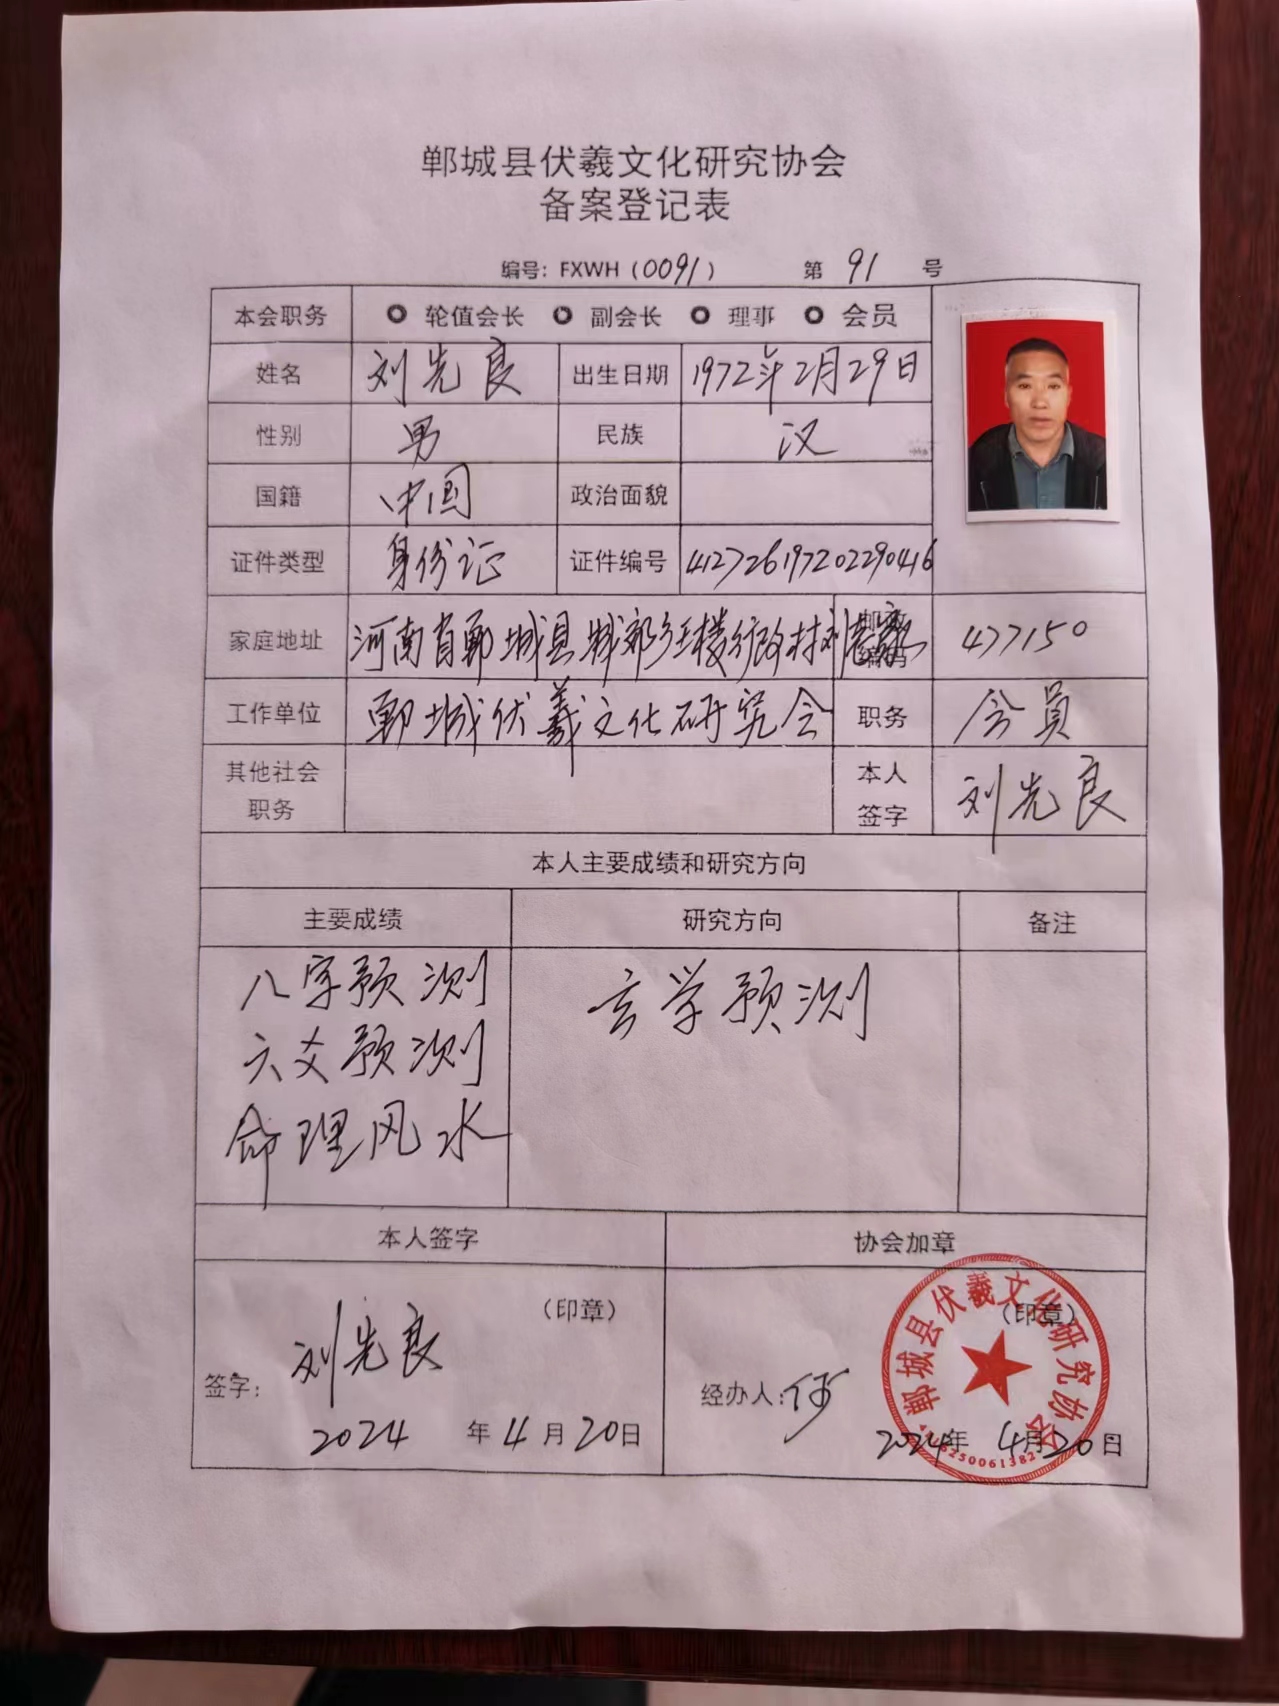 郸城县伏羲文化研究协会
备案登记表
编号：FXWH（0091） 第 91 号
本会职务 轮值会长 副会长 理事 会员
姓名 刘先良 出生日期 1972年2月29日
性别 男 民族 汉
国籍 中国 政治面貌
证件类型 身份证 证件编号 412726197202290416
家庭地址 河南省郸城县城郊乡王楼行政村刘 邮政编码 477150
工作单位 郸城伏羲文化研究会 职务 会員
其他社会职务 本人签字 刘先良
本人主要成绩和研究方向
主要成绩 研究方向 备注
八字预测 玄学预测
六爻预测
命理风水
本人签字 协会加章
（印章） （印章）
签字： 刘先良 经办人：何
2024 年 4 月 20 日 2024 年 4 月 20 日
郸城县伏羲文化研究协会